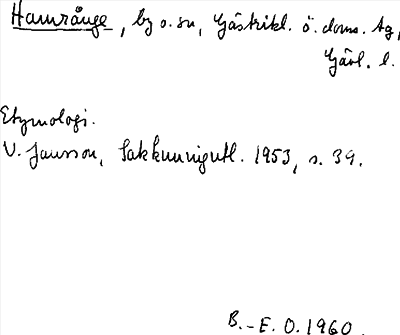 Hamrånge, by o. sn, Gästrikl. ö. doms. tg,
Gävl. l.
Etymologi.
V. Jansson, Sakkunnigutl. 1953, s. 39.
B.-E. O. 1960.